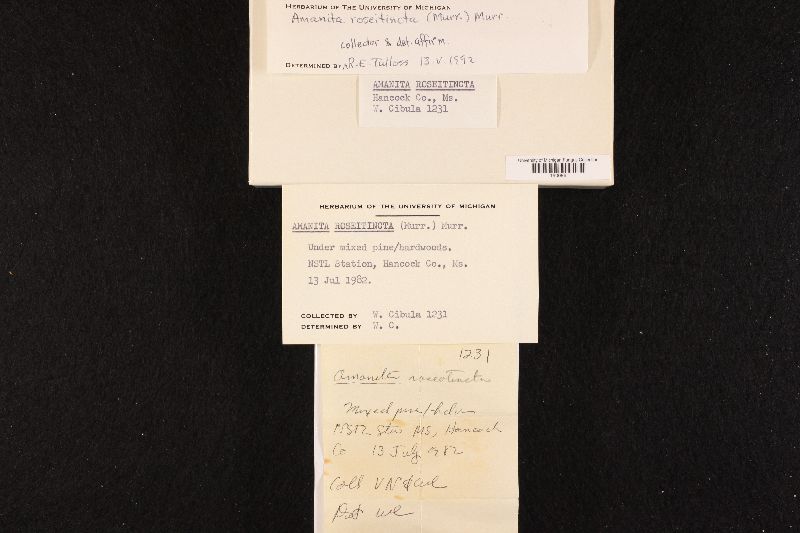 HERBARIUM OF THE UNIVERSITY OF MICHIGAN
Amanita roseitincta (Murr.) Murr.
collector & det. affirm.
DETERMINED BY R.E. Tulloss 13 V 1992
AMANITA ROSEITINCTA
Hancock Co., Ms.
W. Cibula 1231
University of Michigan Fungus Collection
HERBARIUM OF THE UNIVERSITY OF MICHIGAN
AMANITA ROSEITINCTA (Murr.) Murr.
Under mixed pine/hardwoods.
NSTL Station, Hancock Co., Ms.
13 Jul 1982.
COLLECTED BY W. Cibula 1231
DETERMINED BY W. C.
1231
Amanita roseotincta
Mixed pine/hdw
MS, Hancock
Co 13 July 1982
Coll
Det